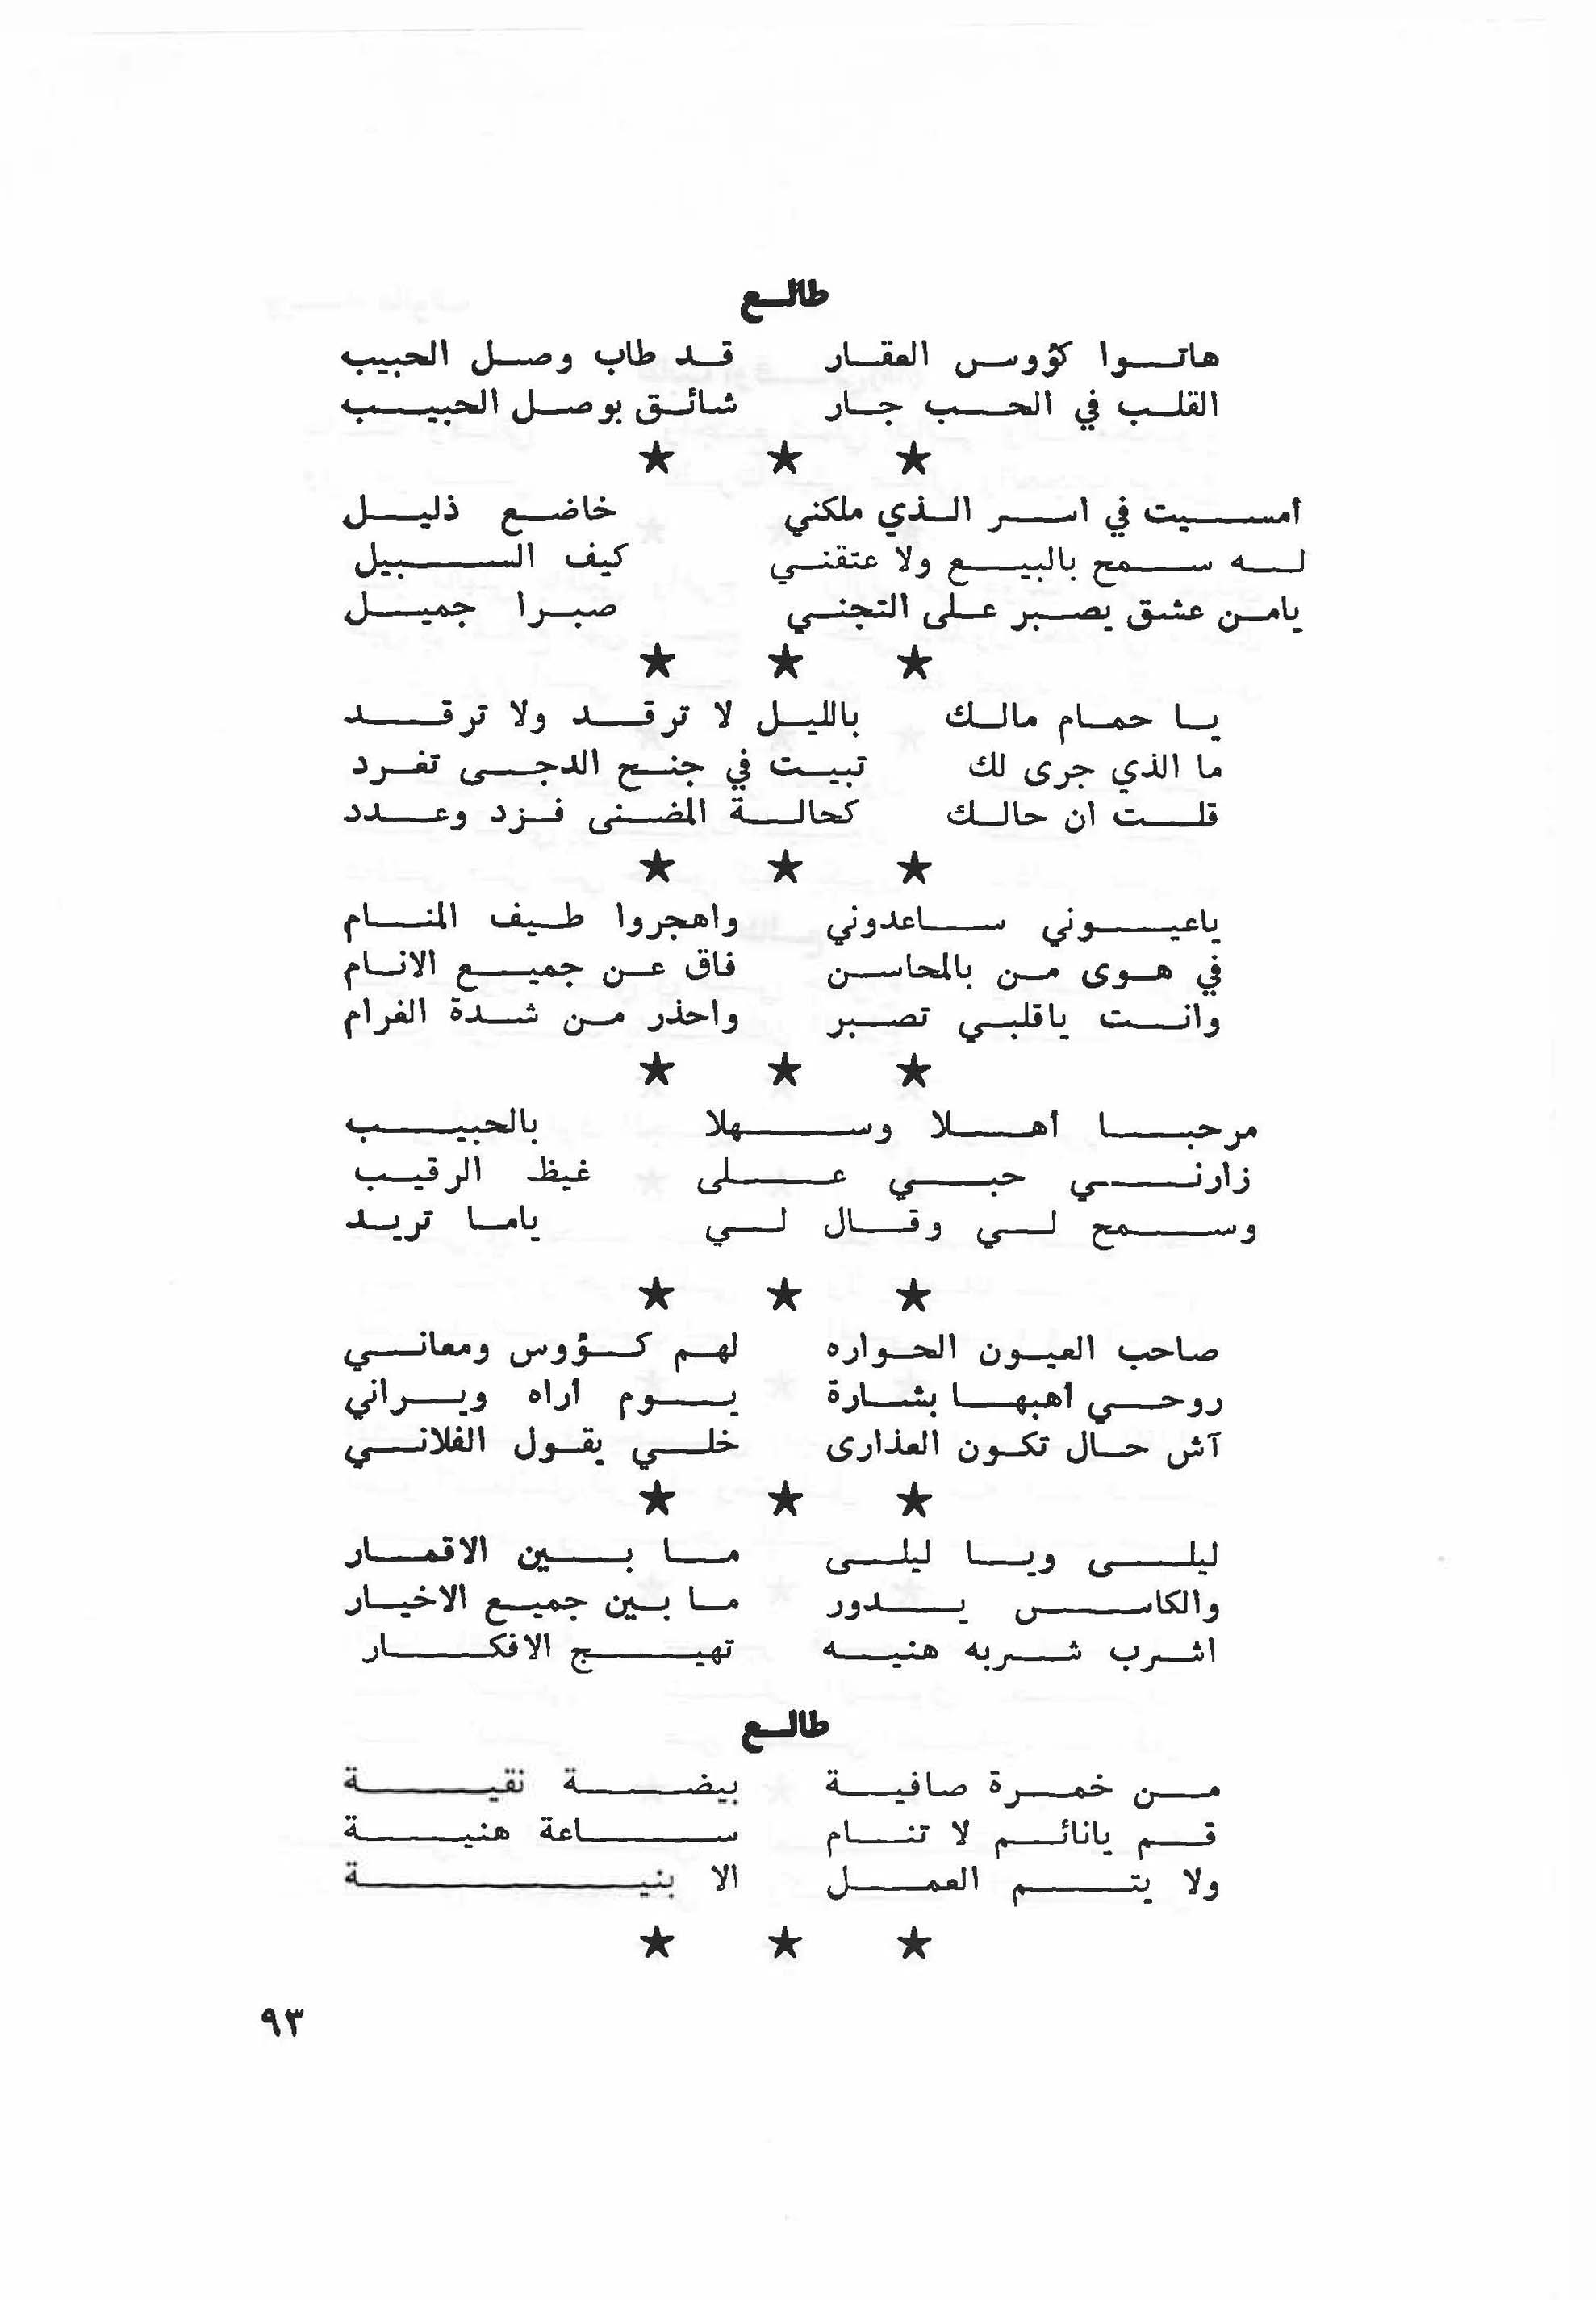 طالع
هاتوا كؤوس العقار قد طاب وصل الحبيب
القلب في الحب جار شائق بوصل الحبيب
★ ★ ★
أمسيت في اسر الذي ملكني خاضع ذليل
له سمح بالبيع ولا عتقني كيف السبيل
يامن عشق يصبر على التجني صبرا جميل
★ ★ ★
يا حمام مالك بالليل لا ترقد ولا ترقد
ما الذي جرى لك تبيت في جنح الدجى تغرد
قلت ان حالك كحالة المضنى فزد وعدد
★ ★ ★
ياعيوني ساعدوني واهجروا طيف المنام
في هوى من بالمحاسن فاق عن جميع الانام
وانت ياقلبي تصبر واحذر من شدة الغرام
★ ★ ★
مرحبا أهلا وسهلا بالحبيب
زارني حبي على غيظ الرقيب
وسمح لي وقال لي ياما تريد
★ ★ ★
صاحب العيون الحواره لهم كؤوس ومعاني
روحي أهبها بشارة يوم أراه ويراني
آش حال تكون العذارى خلي يقول الفلاني
★ ★ ★
ليلى ويا ليلى ما بين الاقمار
والكاس يدور ما بين جميع الاخيار
اشرب شربه هنيه تهيج الافكار
طالع
من خمرة صافية بيضة نقية
قم يانائم لا تنام ساعة هنية
ولا يتم العمل الا بنية
★ ★ ★
٩٣